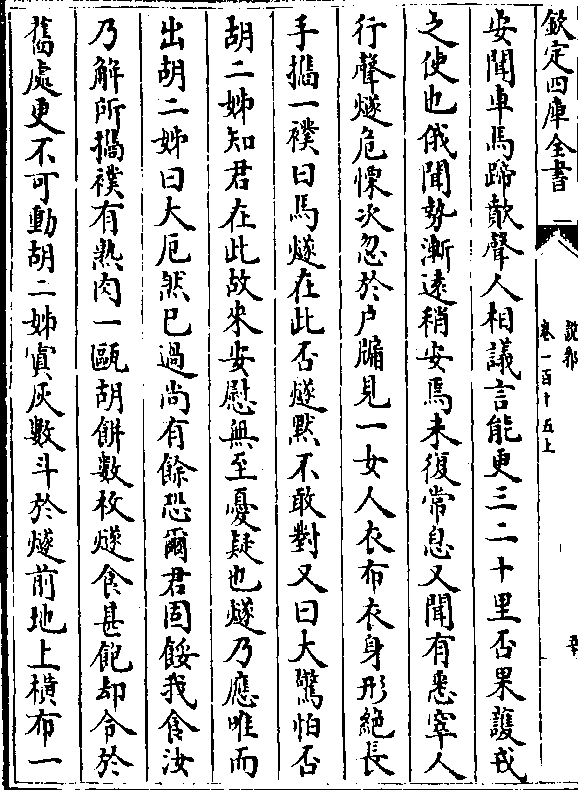 欽定四庫全書
說郛
卷一百十五上
安聞車馬蹄歕聲人相議言能更三二十里否果護戎
之使也俄聞勢漸遠稍安焉未復常息又聞有悉窣人
行聲燧危慄次忽於戶牖見一女人衣布衣身形絕長
手攜一襆曰馬燧在此否燧默不敢對又曰大驚怕否
胡二姊知君在此故來安慰無至憂疑也燧乃應唯而
出胡二姊曰大厄然已過尚有餘恐爾君固餒我食汝
乃解所攜襆有熟肉一甌胡餅數枚燧食甚飽却令於
舊處更不可動胡二姊寘灰數斗於燧前地上橫布一